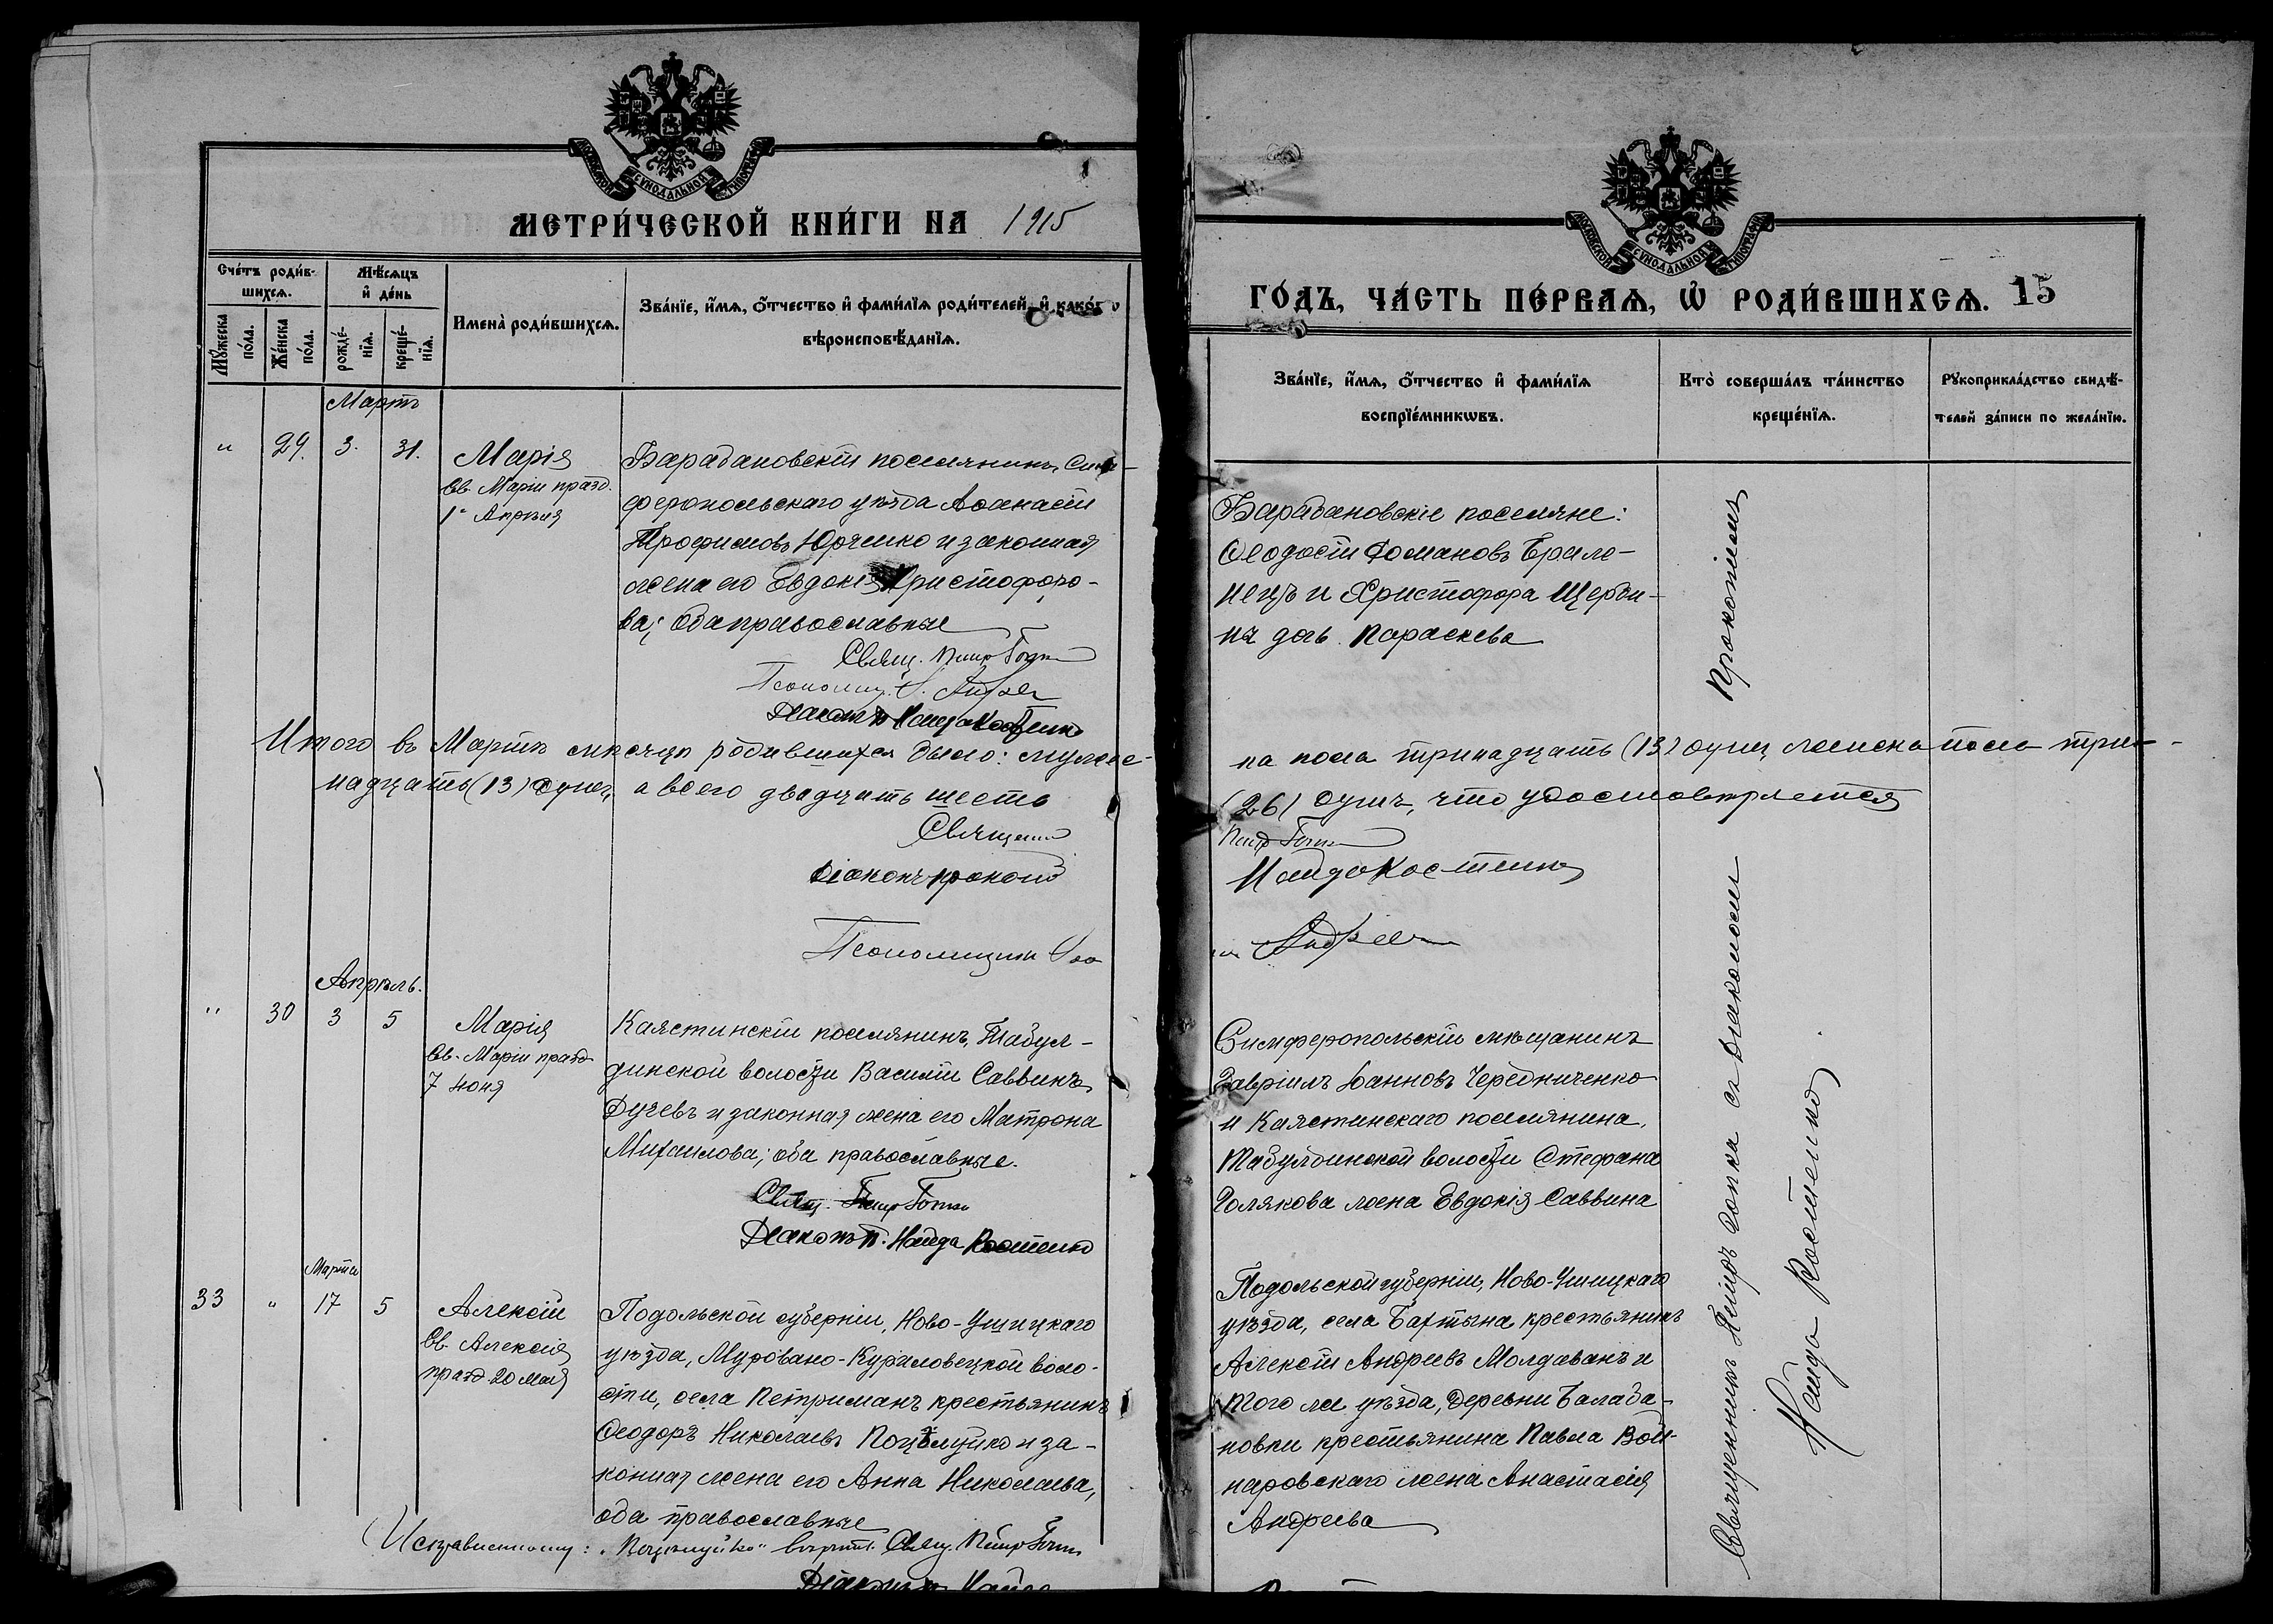 МОСКОВСКОЙ СУНОДАЛЬНОЙ ТИПОГРАФІИ
МЕТРИ́ЧЕСКОЙ КНИ́ГИ НА 1915
Сче́тъ роди́в-
шихсѧ.
Мꙋ́жеска
по́ла.
Же́нска
по́ла.
Мѣ́сѧцъ
и҆ де́нь
рожде́-
нїѧ.
креще́-
нїѧ.
Имена̀ роди́вшихсѧ.
Зва́нїе, и҆́мѧ, ѻ҆́тчество и҆ фами́лїѧ роди́телей, и҆ како́гѡ
вѣроисповѣ́данїѧ.
Мартъ
" 29. 3. 31.
Марія
Св. Маріи празд.
1го Апрѣля
Барабановскій поселянинъ, Сим-
феропольскаго уѣзда Аѳанасій
Трофимовъ Юрченко и законная
жена его Евдокія Христофоро-
ва; оба православные
Свящ. Петръ
Псаломщ.
Діаконъ П. Найда Костенко
Итого въ Мартѣ мѣсяцѣ родившихся было: мужес-
надцать (13) душъ, а всего двадцать шесть
Священн
Діаконъ Прокопій
Псаломщикъ
Апрѣль.
" 30 3 5
Марія
Св. Маріи празд
7 Іюня
Каястинскій поселянинъ, Табул-
динской волости Василій Саввинъ
Дучевъ и законная жена его Матрона
Михаилова; оба православные.
Свящ. Петръ
Діаконъ П. Найда Костенко
Марта
33 " 17 5
Алексій
Св. Алексія
празд 20 Мая
Подольской губерніи, Ново-Ушицкаго
уѣзда, Муровано-Куриловецкой воло-
сти, села Петриманъ крестьянинъ
Ѳеодоръ Николаевъ Поцѣлуйко и за-
конная жена его Анна Николаева,
оба православные
Исправленному: "Поцѣлуйко" вѣрить. Свящ. Петръ
Діаконъ П. Найда
МОСКОВСКОЙ СУНОДАЛЬНОЙ ТИПОГРАФІИ
ГО́ДЪ, ЧА́СТЬ ПЕ́РВАѦ, Ѽ РОДИ́ВШИХСѦ. 15
Зва́нїе, и҆́мѧ, ѻ҆́тчество и҆ фами́лїѧ
воспрїе́мникѡвъ.
Кто̀ соверша́лъ та́инство
креще́нїѧ.
Рꙋкоприкла́дство свидѣ́-
телей за́писи по жела́нїю.
Барабановскіе поселяне:
Ѳеодосій Романовъ Брило-
нецъ и Христофора Щерби-
ны дочь Параскева
на пола тринадцать (13) душъ, женска пола три-
(26) душъ, что удостовѣряется
Петръ
Найда Костенко
Симферопольскій мѣщанинъ
Гавріилъ Іоанновъ Чередниченко
и Каястинскаго поселянина,
Табулдинской волости Стефана
Полякова жена Евдокія Саввина
Подольской губерніи, Ново-Ушицкаго
уѣзда, села Бахтына крестьянинъ
Алексій Андреевъ Молдаванъ и
того же уѣзда, деревни Балаба-
новки крестьянина Павла Вой-
наровскаго жена Анастасія
Андреева
Священникъ Петръ съ діакономъ
Прокопіемъ
Найда Костенко